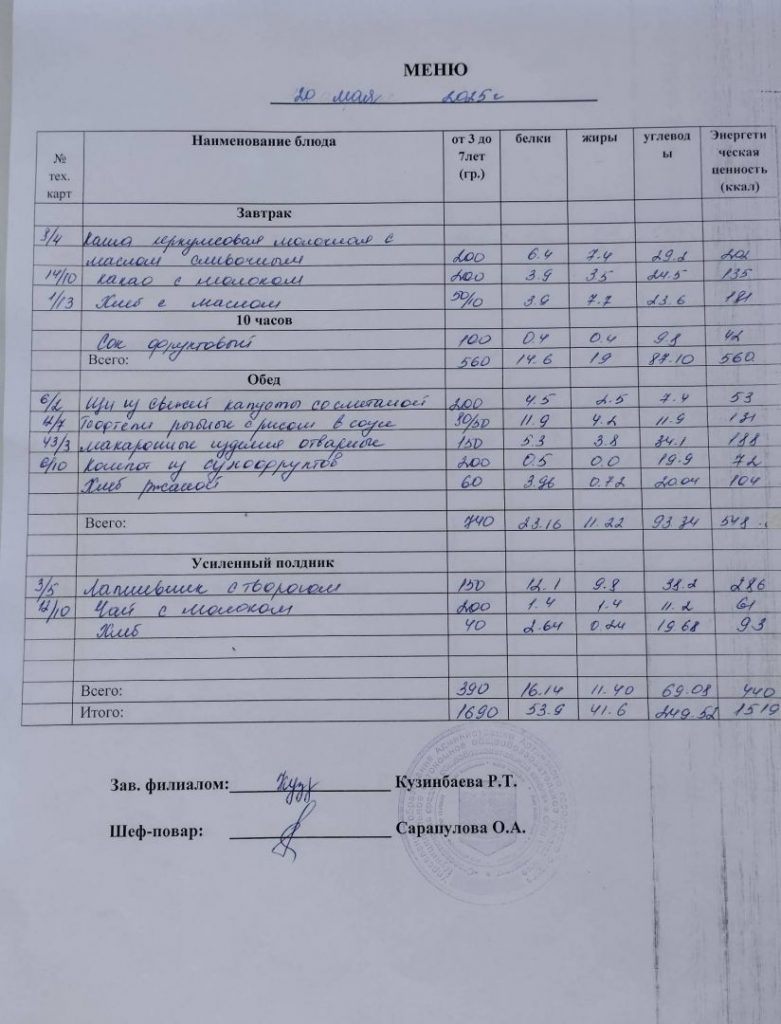 МЕНЮ
20 мая 2025 г
№ тех. карт Наименование блюда от 3 до 7лет (гр.) белки жиры углеводы Энергетическая ценность (ккал)
Завтрак
3/4 Каша геркулесовая молочная с
маслом сливочным 200 6.4 7.4 29.2 202
14/10 какао с молоком 200 3.9 35 24.5 135
1/13 Хлеб с маслом 50/10 3.9 7.7 23.6 181
10 часов
Сок фруктовый 100 0.4 0.4 9.8 42
Всего: 560 14.6 19 87.10 560
Обед
6/2 Щи из свежей капусты со сметаной 200 4.5 2.5 7.4 53
12/7 Тефтели рыбные с рисом в соусе 90/50 11.9 4.2 11.9 131
43/3 макаронные изделия отварные 150 5.3 3.8 34.1 188
6/10 Компот из сухофруктов 200 0.5 0.0 19.9 72
Хлеб ржаной 60 3.96 0.72 20.04 104
Всего: 740 23.16 11.22 93.34 548
Усиленный полдник
3/5 Лапшевник с творогом 150 12.1 9.8 38.2 286
12/10 Чай с молоком 200 1.4 1.4 11.2 61
Хлеб 40 2.64 0.24 19.68 93
Всего: 390 16.14 11.40 69.08 440
Итого: 1690 53.9 41.6 249.52 1519
Зав. филиалом: Кузинбаева Р.Т.
Шеф-повар: Сарапулова О.А.